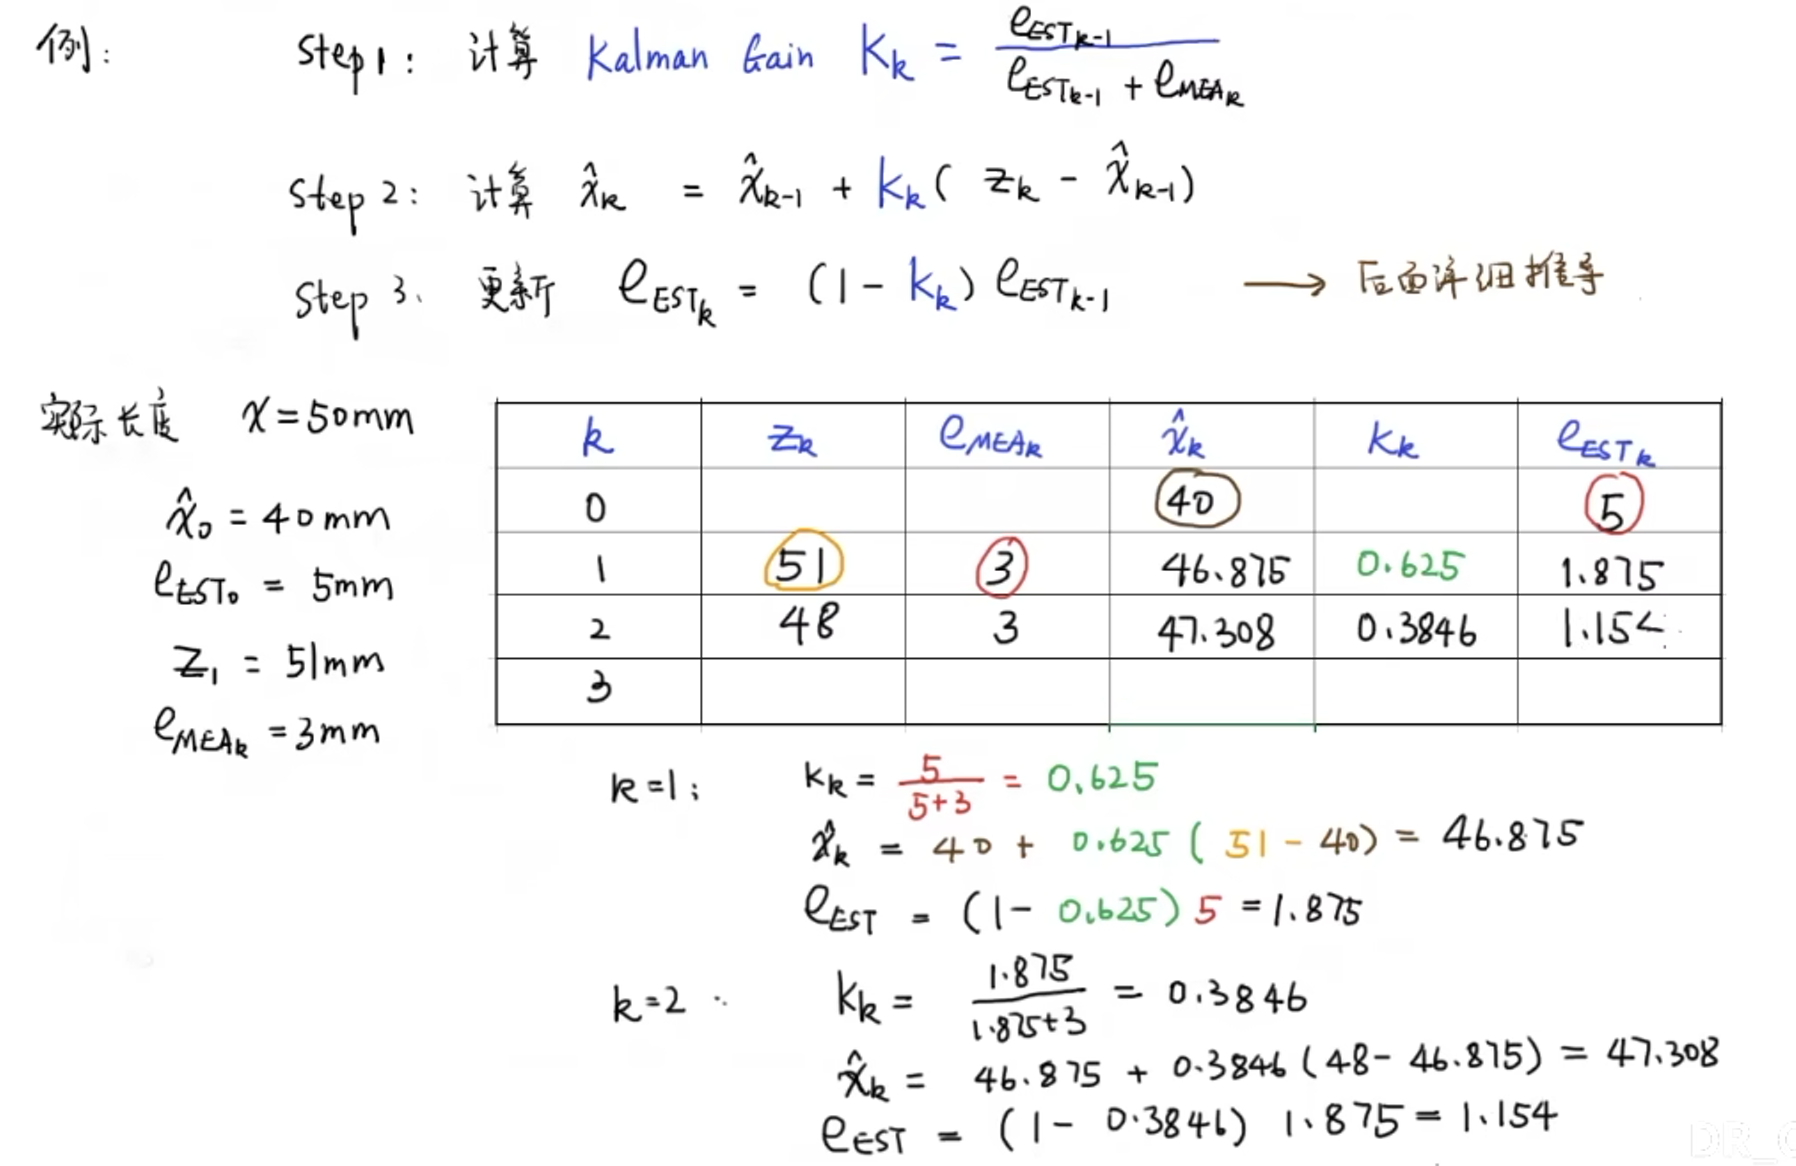 例: Step1: 计算 Kalman Gain Kk = eESTk-1 / (eESTk-1 + eMEAk)
Step 2: 计算 x̂k = x̂k-1 + Kk( zk - x̂k-1)
Step 3. 更新 eESTk = (1 - Kk) eESTk-1 → 后面详细推导
实际长度 x = 50mm
x̂0 = 40mm
eEST0 = 5mm
z1 = 51mm
eMEAk = 3mm
k zk eMEAk x̂k Kk eESTk
0 40 5
1 51 3 46.875 0.625 1.875
2 48 3 47.308 0.3846 1.154
3
k=1: Kk = 5 / (5+3) = 0.625
x̂k = 40 + 0.625 ( 51 - 40) = 46.875
eEST = (1 - 0.625) 5 = 1.875
k=2: Kk = 1.875 / (1.875+3) = 0.3846
x̂k = 46.875 + 0.3846 (48 - 46.875) = 47.308
eEST = (1 - 0.3846) 1.875 = 1.154